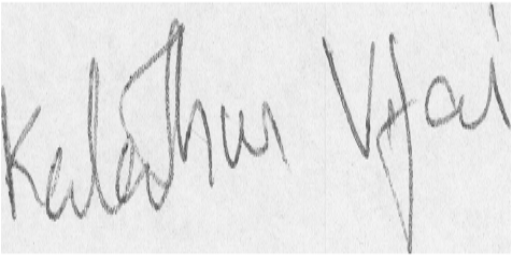 Kalathur Vjai